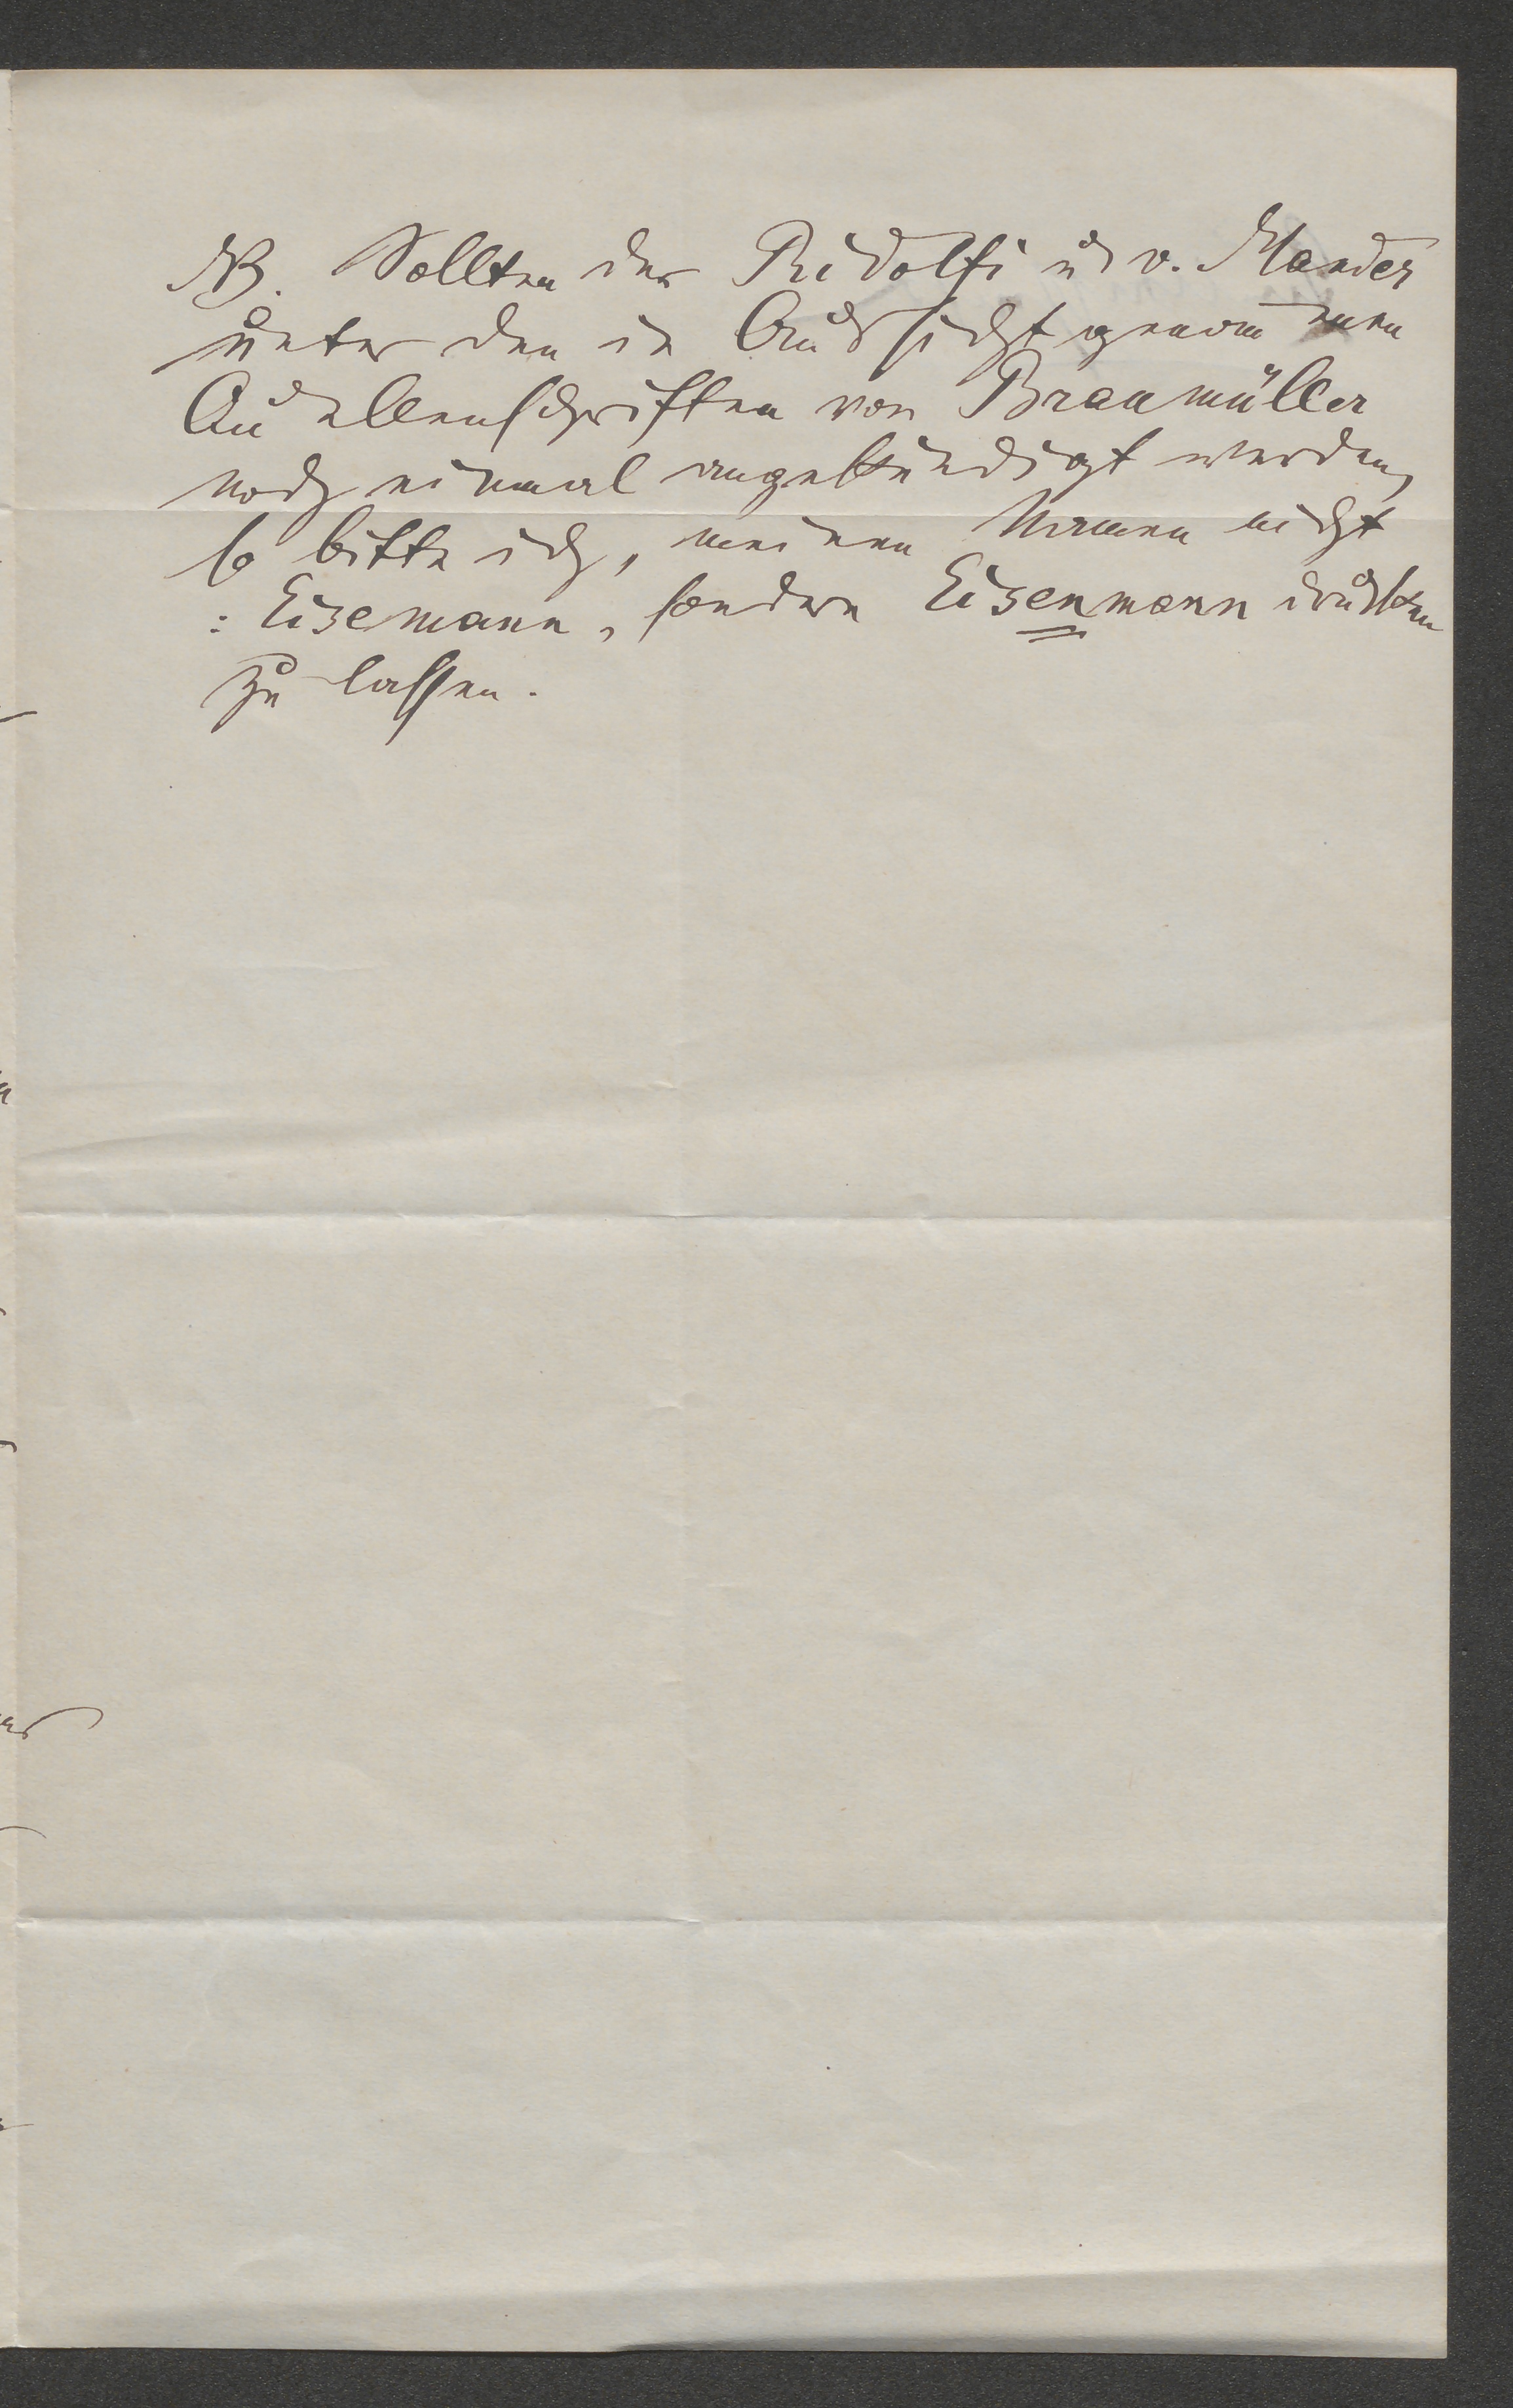 NB. Sollten der Ridolfi u v. Mander
unter den in Aussicht genommenen
Quellenschriften von Braumüller
noch einmal angekündigt werden,
so bitte ich, meinen Namen nicht
: Eisemann, sondern Eisenmann drucken
zu lassen.